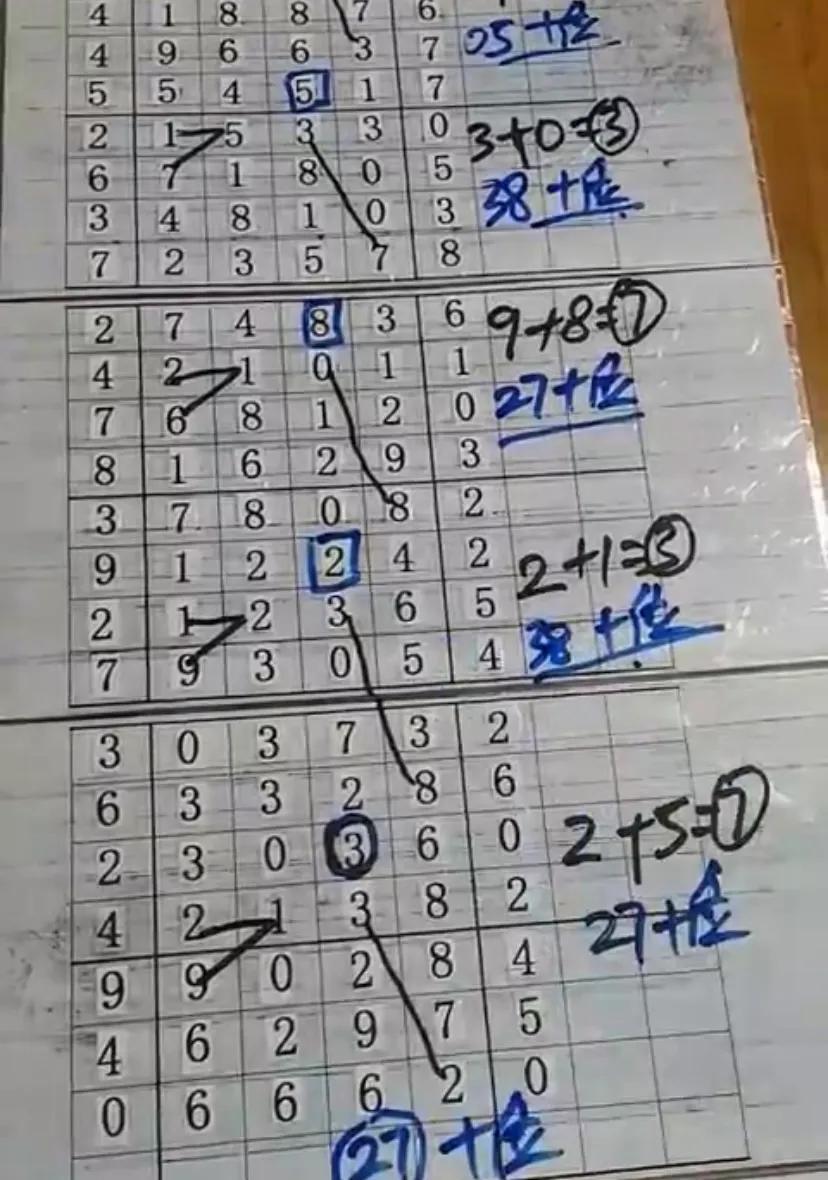 4 1 8 8 7 6
4 9 6 6 3 7 05+位
5 5 4 5 1 7
2 1 5 3 3 0 3+0=③
6 7 1 8 0 5
3 4 8 1 0 3 38+位
7 2 3 5 7 8
2 7 4 8 3 6 9+8=⑦
4 2 1 0 1 1
7 6 8 1 2 0 27+位
8 1 6 2 9 3
3 7 8 0 8 2
9 1 2 2 4 2 2+1=③
2 1 2 3 6 5
7 9 3 0 5 4 38+位
3 0 3 7 3 2
6 3 3 2 8 6
2 3 0 3 6 0 2+5=⑦
4 2 1 3 8 2 27+位
9 9 0 2 8 4
4 6 2 9 7 5
0 6 6 6 2 0
27+位